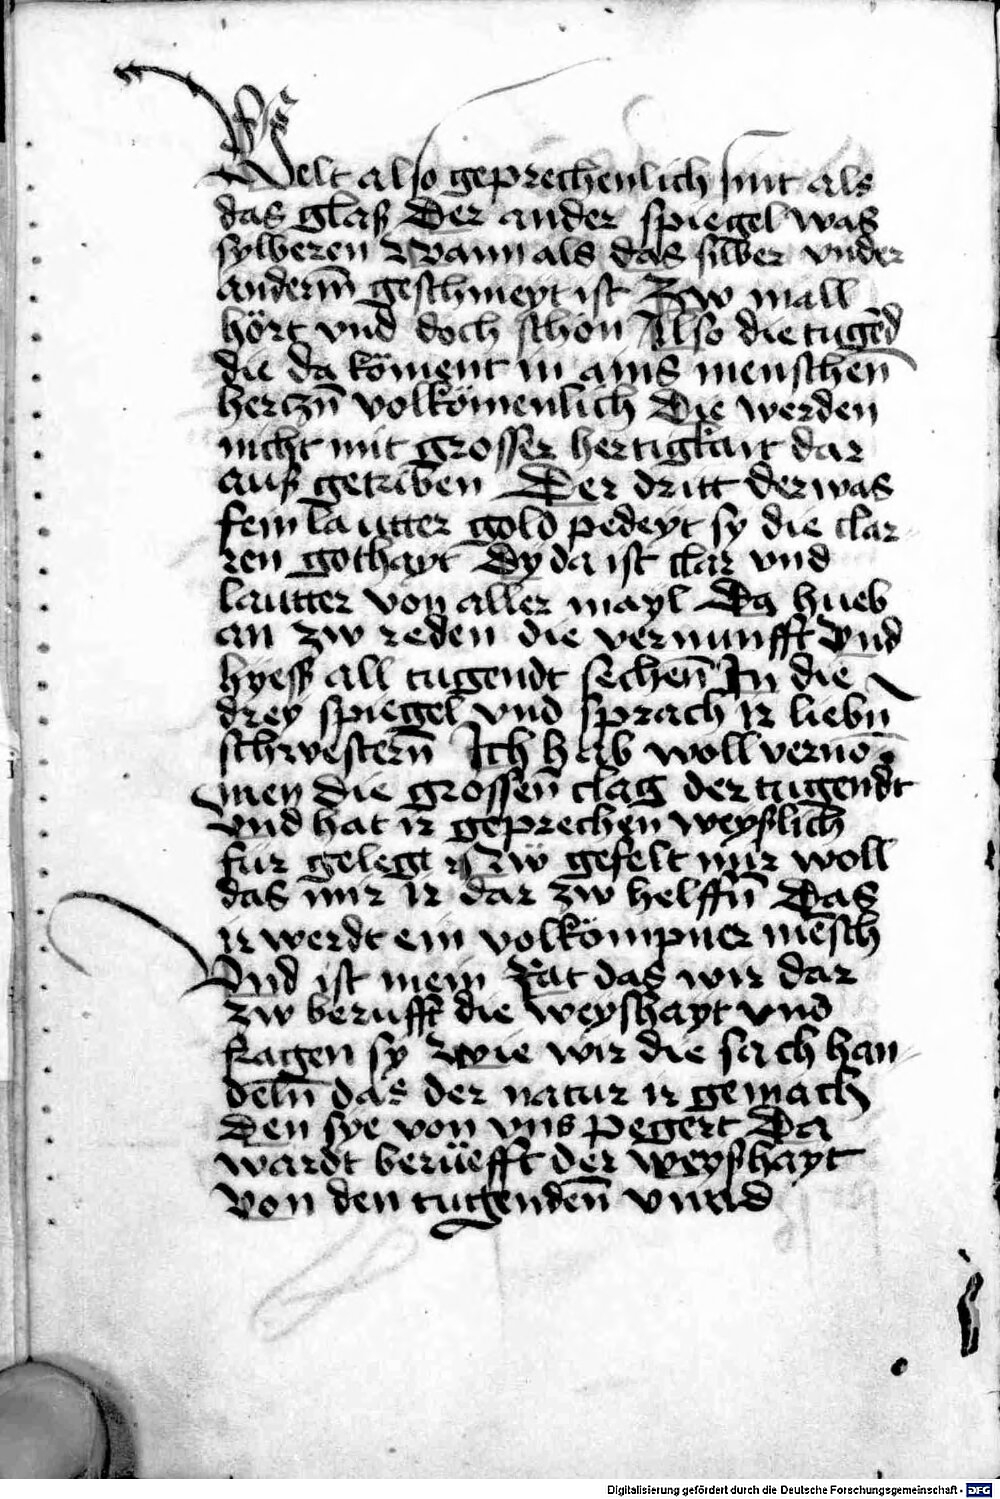 Welt also geprechenlich sint als
das glaß Der ander spiegel was
sylberen Wann als das silber vnder
anderm̄ geschmeyt ist Zw mall
hört vnd doch schon Also die tugēd
die da köment in ains menschen̄
hertzn̄ volkömenlich Die werden
nicht mit grosser hertigkait dar
auß getriben Der dritt der was
fein lautter gold pedeyt sy die clar-
ren gothayt Dy da ist clar vnd
lautter von aller mayl Da hueb
an zw reden die vernunfft Vnd
hyess all tugendt sechen̄ In die
drey spiegel vnd sprach ir liebn̄
schwestern̄ Ich hab woll vernō-
men die grossen̄ clag der tugendt
vnd hat ir geprechen weyßlich
für gelegt zẅ gefelt mir woll
das mir ir dar zw helffn̄ Das
ir werdt ein volkömpner mēsch
Vnd ist mein Rat das wir dar
zw berufft die weyshayt vnd
fragen sy Wie wir die sach han-
deln̄ das der natur ir gemach
den sye von vns pegert Da
wardt berüefft der weyßhayt
von den tugenden̄ vnnd
Digitalisierung gefördert durch die Deutsche Forschungsgemeinschaft - DFG